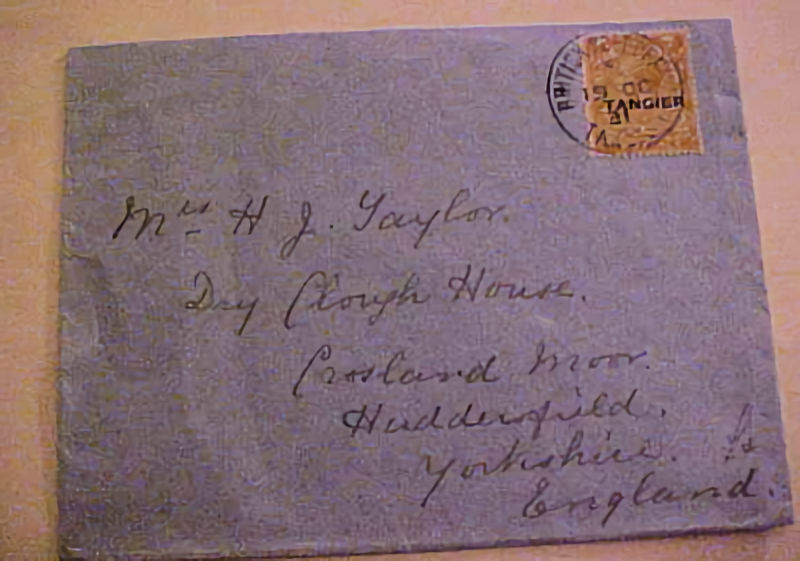 BRITISH
19 OC
TANGIER
31
Mrs H J. Taylor.
Dry Clough House.
Crosland Moor.
Huddersfield.
Yorkshire.
England.